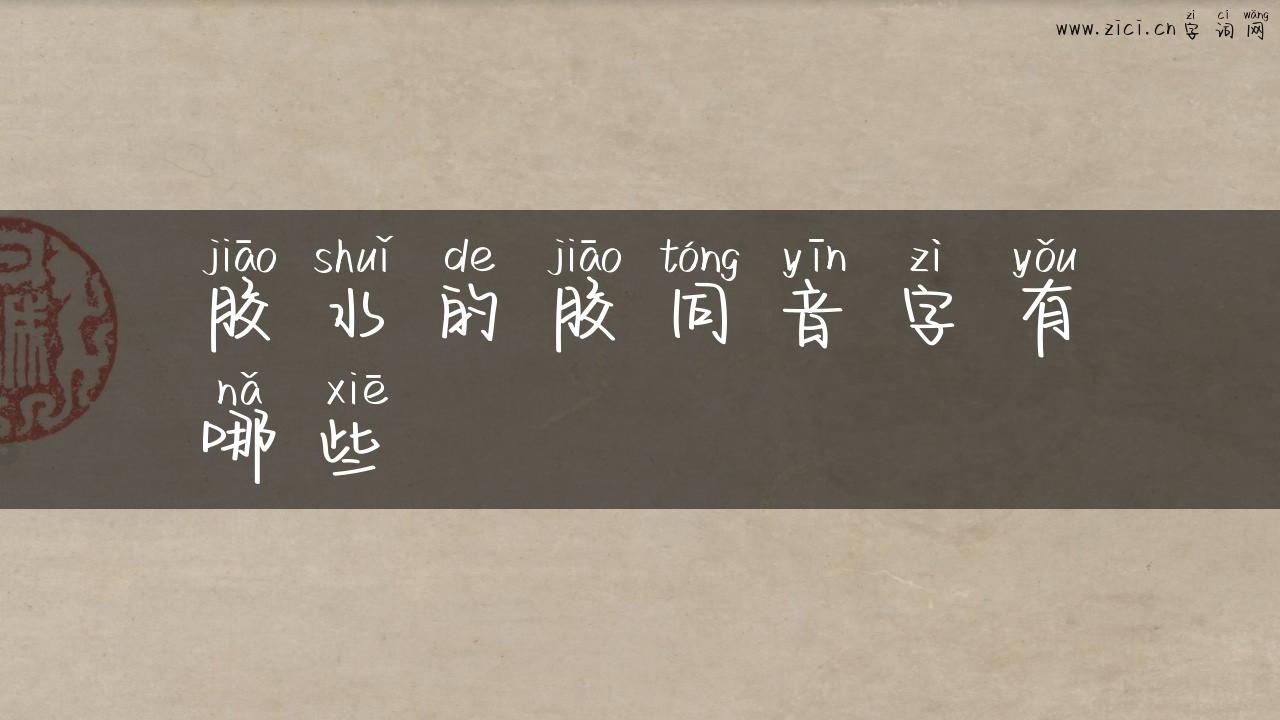 zì cí wǎng
www.zici.cn 字 词 网
jiāo shuǐ de jiāo tóng yīn zì yǒu
胶 水 的 胶 同 音 字 有
nǎ xiē
哪 些